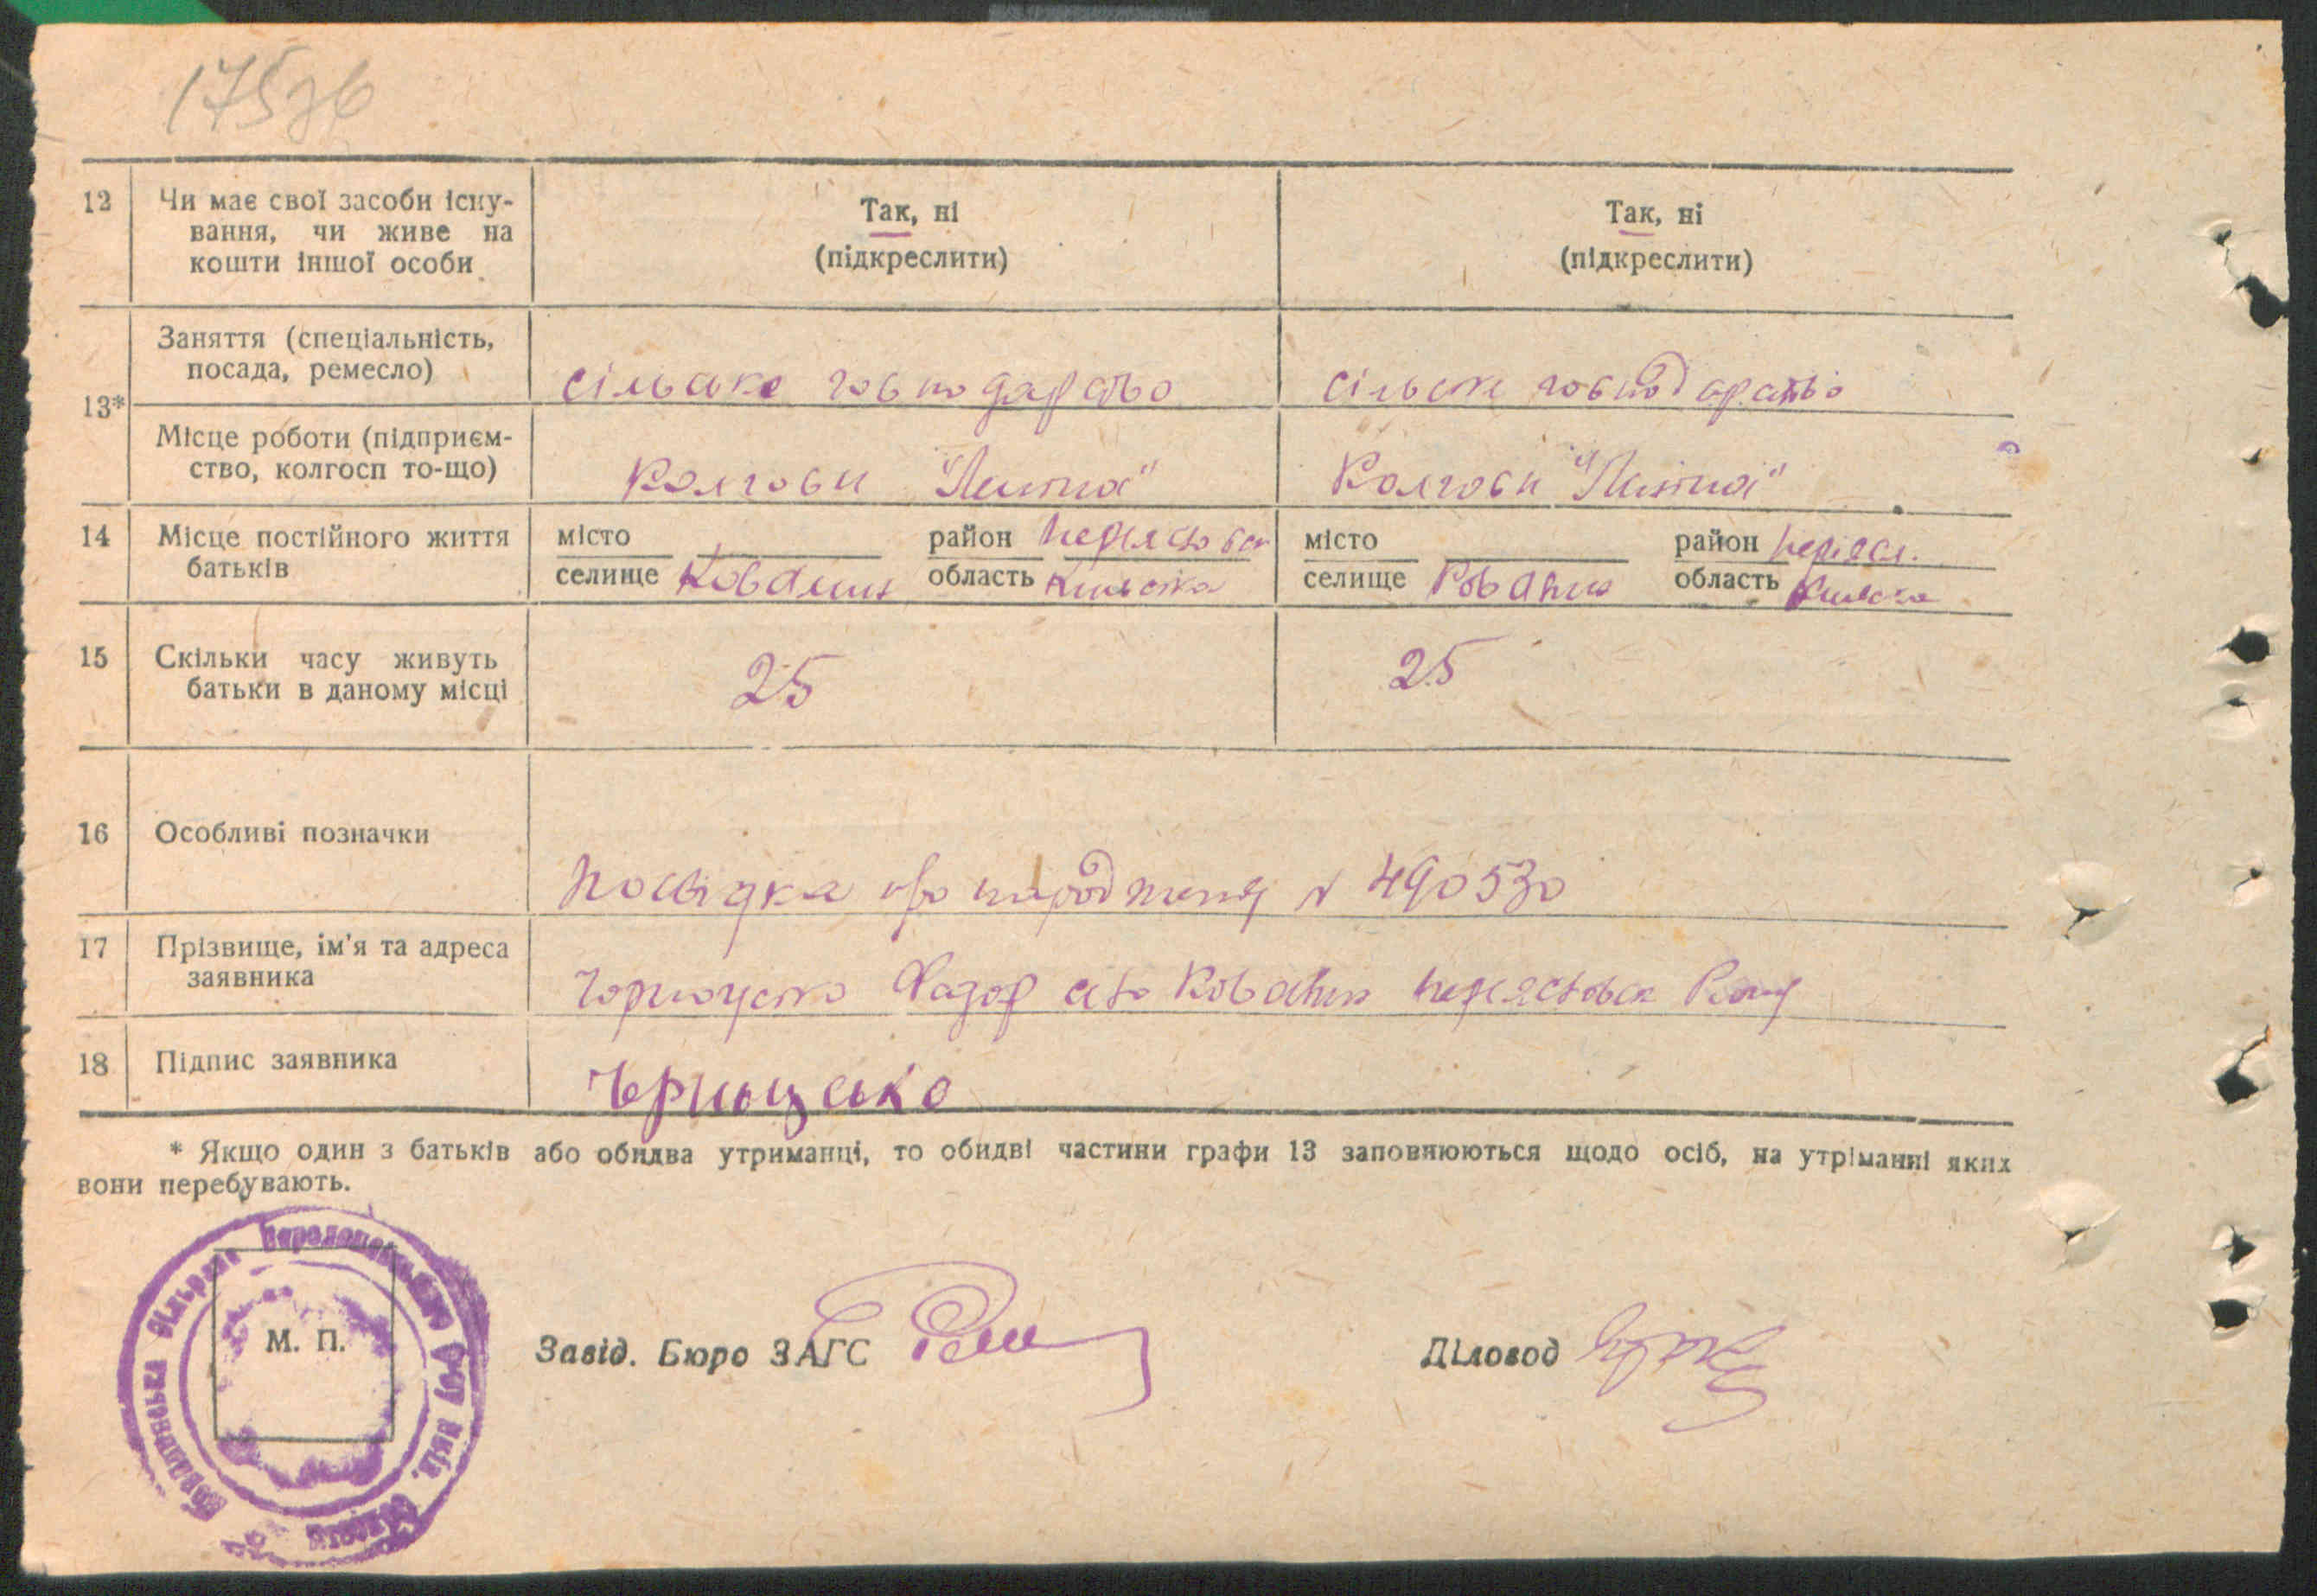 175зв
12 Чи має свої засоби існу-
вання, чи живе на
кошти іншої особи
Так, ні
(підкреслити)
Так, ні
(підкреслити)
13*
Заняття (спеціальність,
посада, ремесло)
сільське господарство
сільське господарство
Місце роботи (підприєм-
ство, колгосп то-що)
Колгосп
Колгосп
14 Місце постійного життя
батьків
місто район
селище Ковалин область Київська
місто район Переясл.
селище Ковалин область Київска
15 Скільки часу живуть
батьки в даному місці
25
25
16 Особливі позначки
Посвідка про народження N 490530
17 Прізвище, ім'я та адреса
заявника
село Ковалин
18 Підпис заявника
* Якщо один з батьків або обидва утриманці, то обидві частини графи 13 заповнюються щодо осіб, на утріманні яких
вони перебувають.
М. П.
Завід. Бюро ЗАГС
Діловод